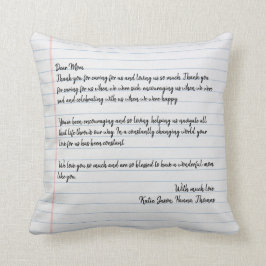 Dear Mom
Thank you for caring for us and loving us so much. Thank you
for caring for us when we were sick, encouraging us when we were
sad and celebrating with us when we were happy.
You've been encouraging and so loving, helping us navigate all
that life throws our way. In a constantly changing world, your
love for us has been constant.
We love you so much and are so blessed to have a wonderful mom
like you.
With much love
Katie, Jason, Hanna, Thomas